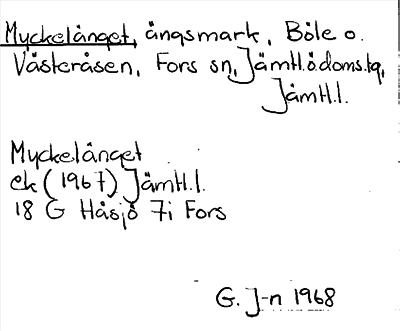 Myckelänget, ängsmark, Böle o.
Västeråsen, Fors sn, Jämtl.ö.doms.tg,
Jämtl.l.
Myckelänget
ek (1967) Jämtl.l.
18 G Håsjö 7i Fors
G. J-n 1968